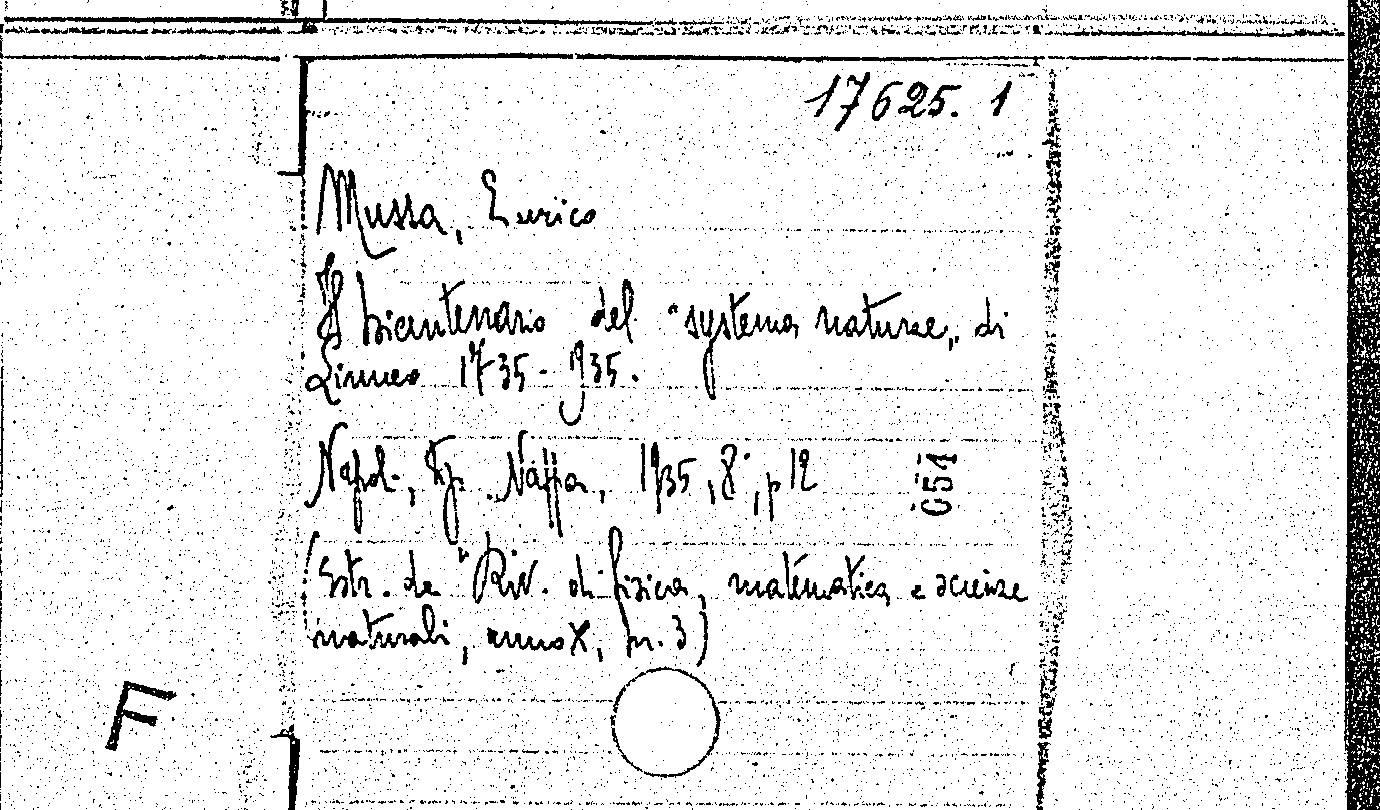 17625. 1
Mussa, Enrico
Il bicentenario del "systema naturae„ di
Linneo 1735-935.
Napoli, Tip. Naffa, 1935, 8°, p 12
C51
(Estr. da "Riv. di fisica, matematica e scienze
naturali, anno X, n. 3)
F